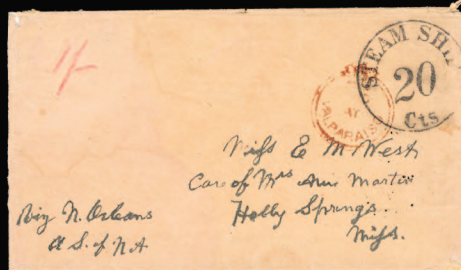 1/-
STEAM SHI
20
Cts
PAID
AT
VALPARAISO
Miss E M West
Care of Mrs Ann Martin
Holly Springs
Miss.
Via N. Orleans
U S. of N A